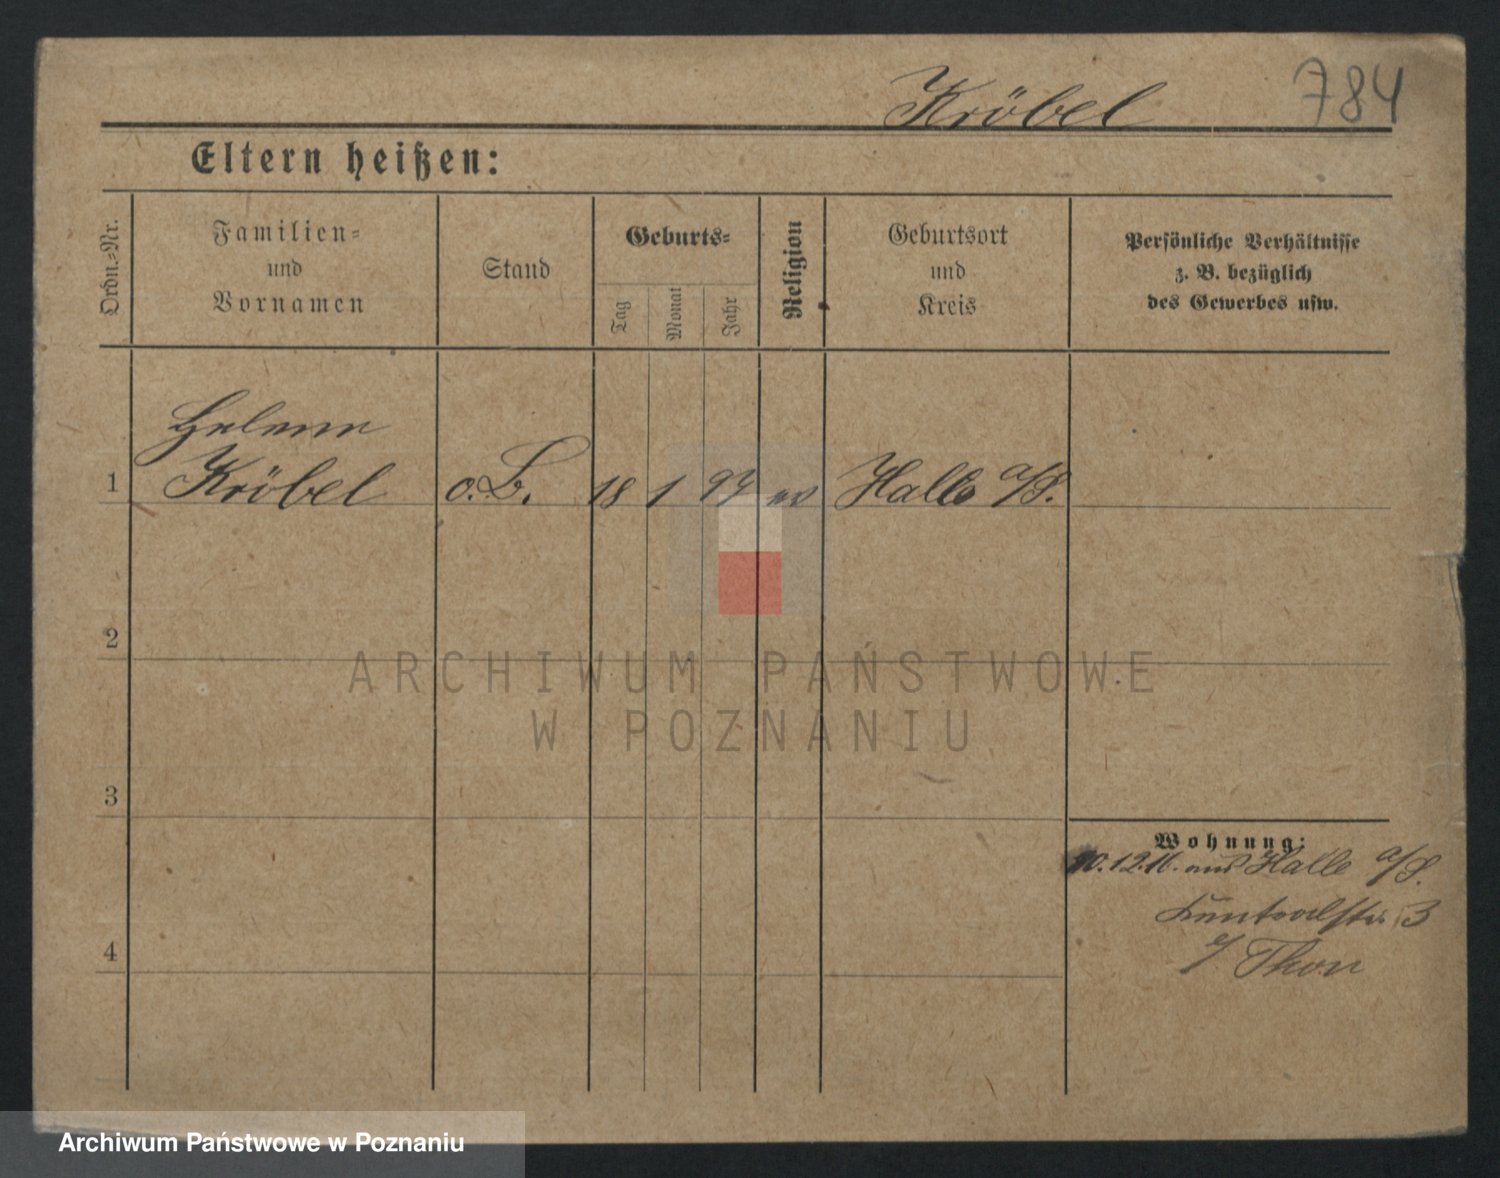 Kröbel 784
Eltern heißen:
Ordn.-Nr.
Familien-
und
Vornamen
Stand
Geburts-
Tag
Monat
Jahr
Religion
Geburtsort
und
Kreis
Persönliche Verhältnisse
z. B. bezüglich
des Gewerbes usw.
Helene
1 Kröbel o.B. 18 1 97 ev Halle a/S.
2
3
4
Wohnung:
10.12.16. aus Halle a/S.
3
b/ Thon
ARCHIWUM PAŃSTWOWE
W POZNANIU
Archiwum Państwowe w Poznaniu